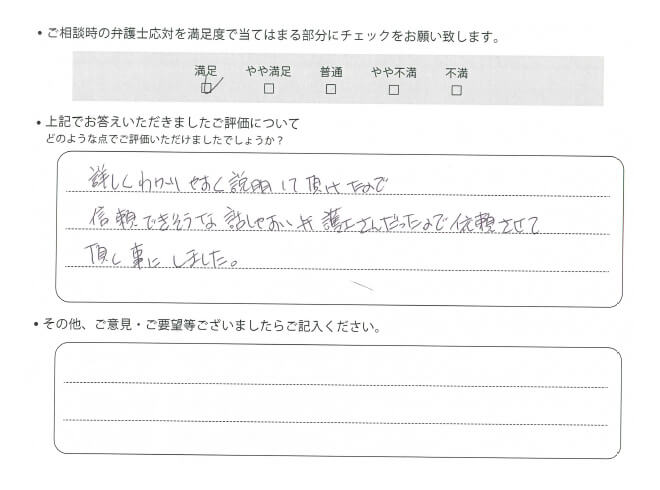 • ご相談時の弁護士応対を満足度で当てはまる部分にチェックをお願い致します。
満足 やや満足 普通 やや不満 不満
• 上記でお答えいただきましたご評価について
どのような点でご評価いただけましたでしょうか？
詳しくわかりやすく説明して頂けたので
信頼できそうな話しやすい弁護士さんだったので依頼させて
頂く事にしました。
• その他、ご意見・ご要望等ございましたらご記入ください。